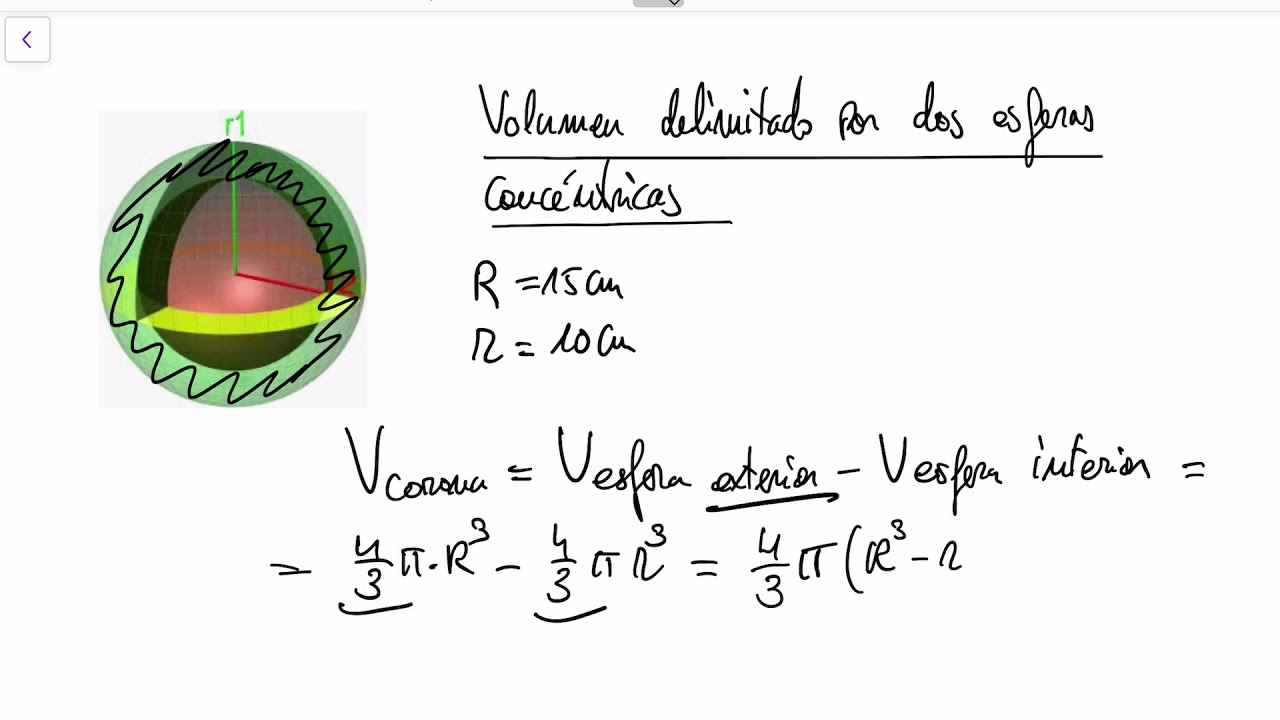 r1
Volumen delimitado por dos esferas
concéntricas
R = 15 cm
r = 10 cm
V corona = V esfera exterior - V esfera interior =
= 4/3 π · R³ - 4/3 π r³ = 4/3 π (R³ - r